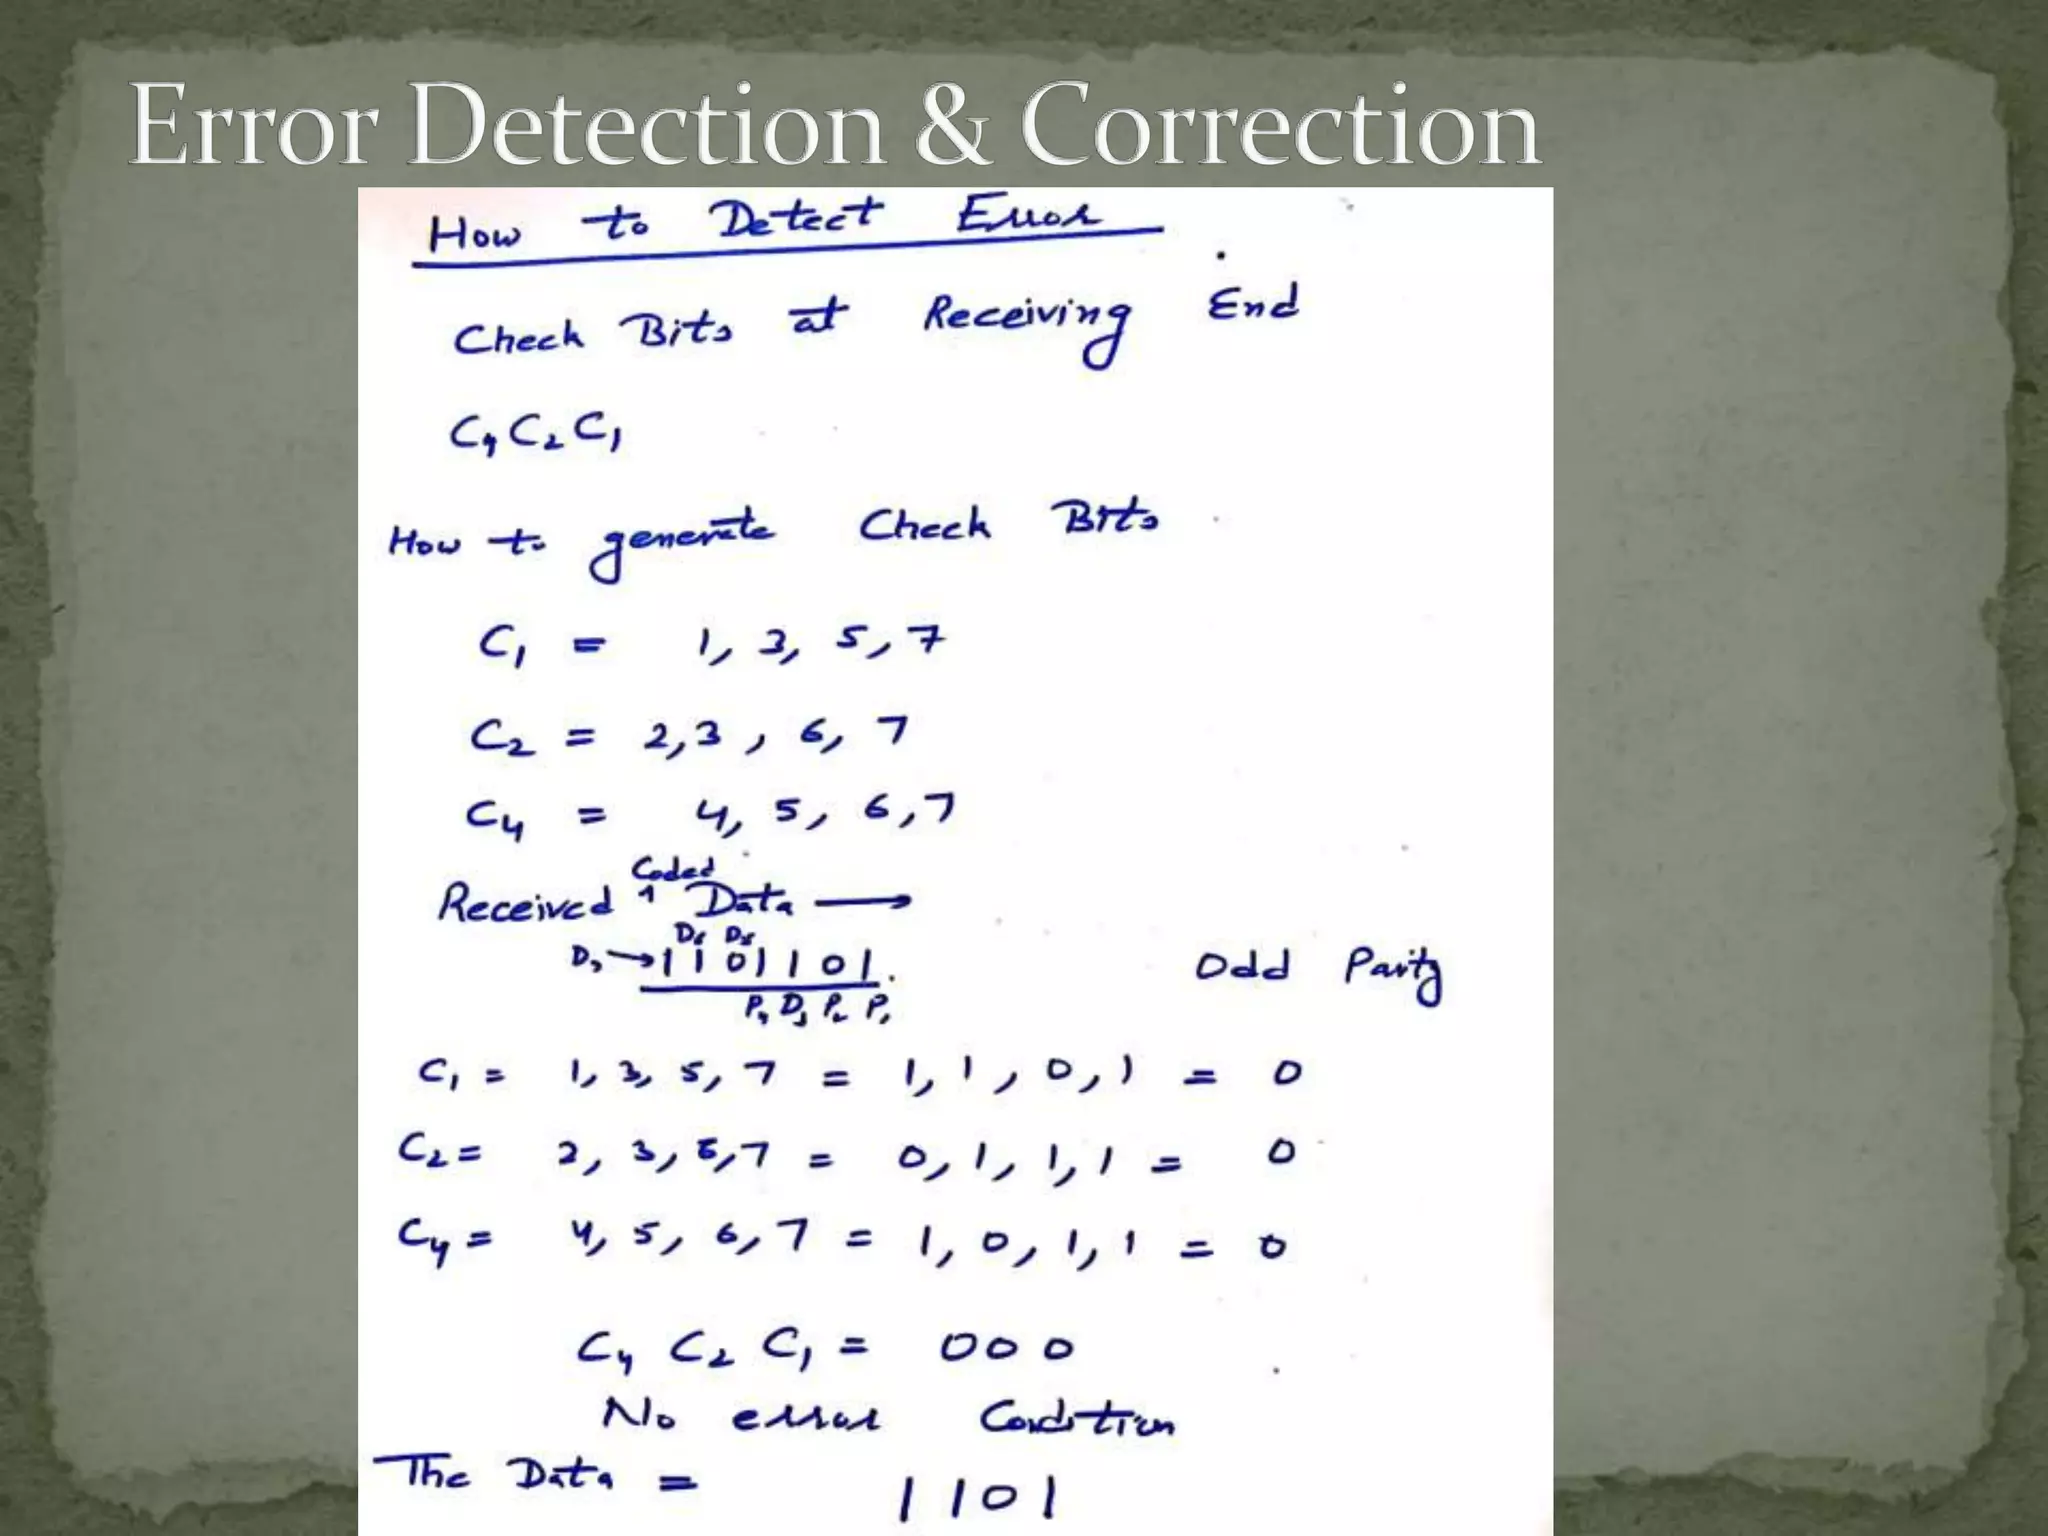 Error Detection & Correction
How to Detect Error
Check Bits at Receiving End
C4 C2 C1
How to generate Check Bits
C1 = 1, 3, 5, 7
C2 = 2, 3, 6, 7
C4 = 4, 5, 6, 7
Coded
Received Data →
D6 D5
D7 → 1 1 0 1 1 0 1. Odd Parity
P4 D3 P2 P1
C1 = 1, 3, 5, 7 = 1, 1, 0, 1 = 0
C2 = 2, 3, 6, 7 = 0, 1, 1, 1 = 0
C4 = 4, 5, 6, 7 = 1, 0, 1, 1 = 0
C4 C2 C1 = 0 0 0
No error Condition
The Data = 1 1 0 1